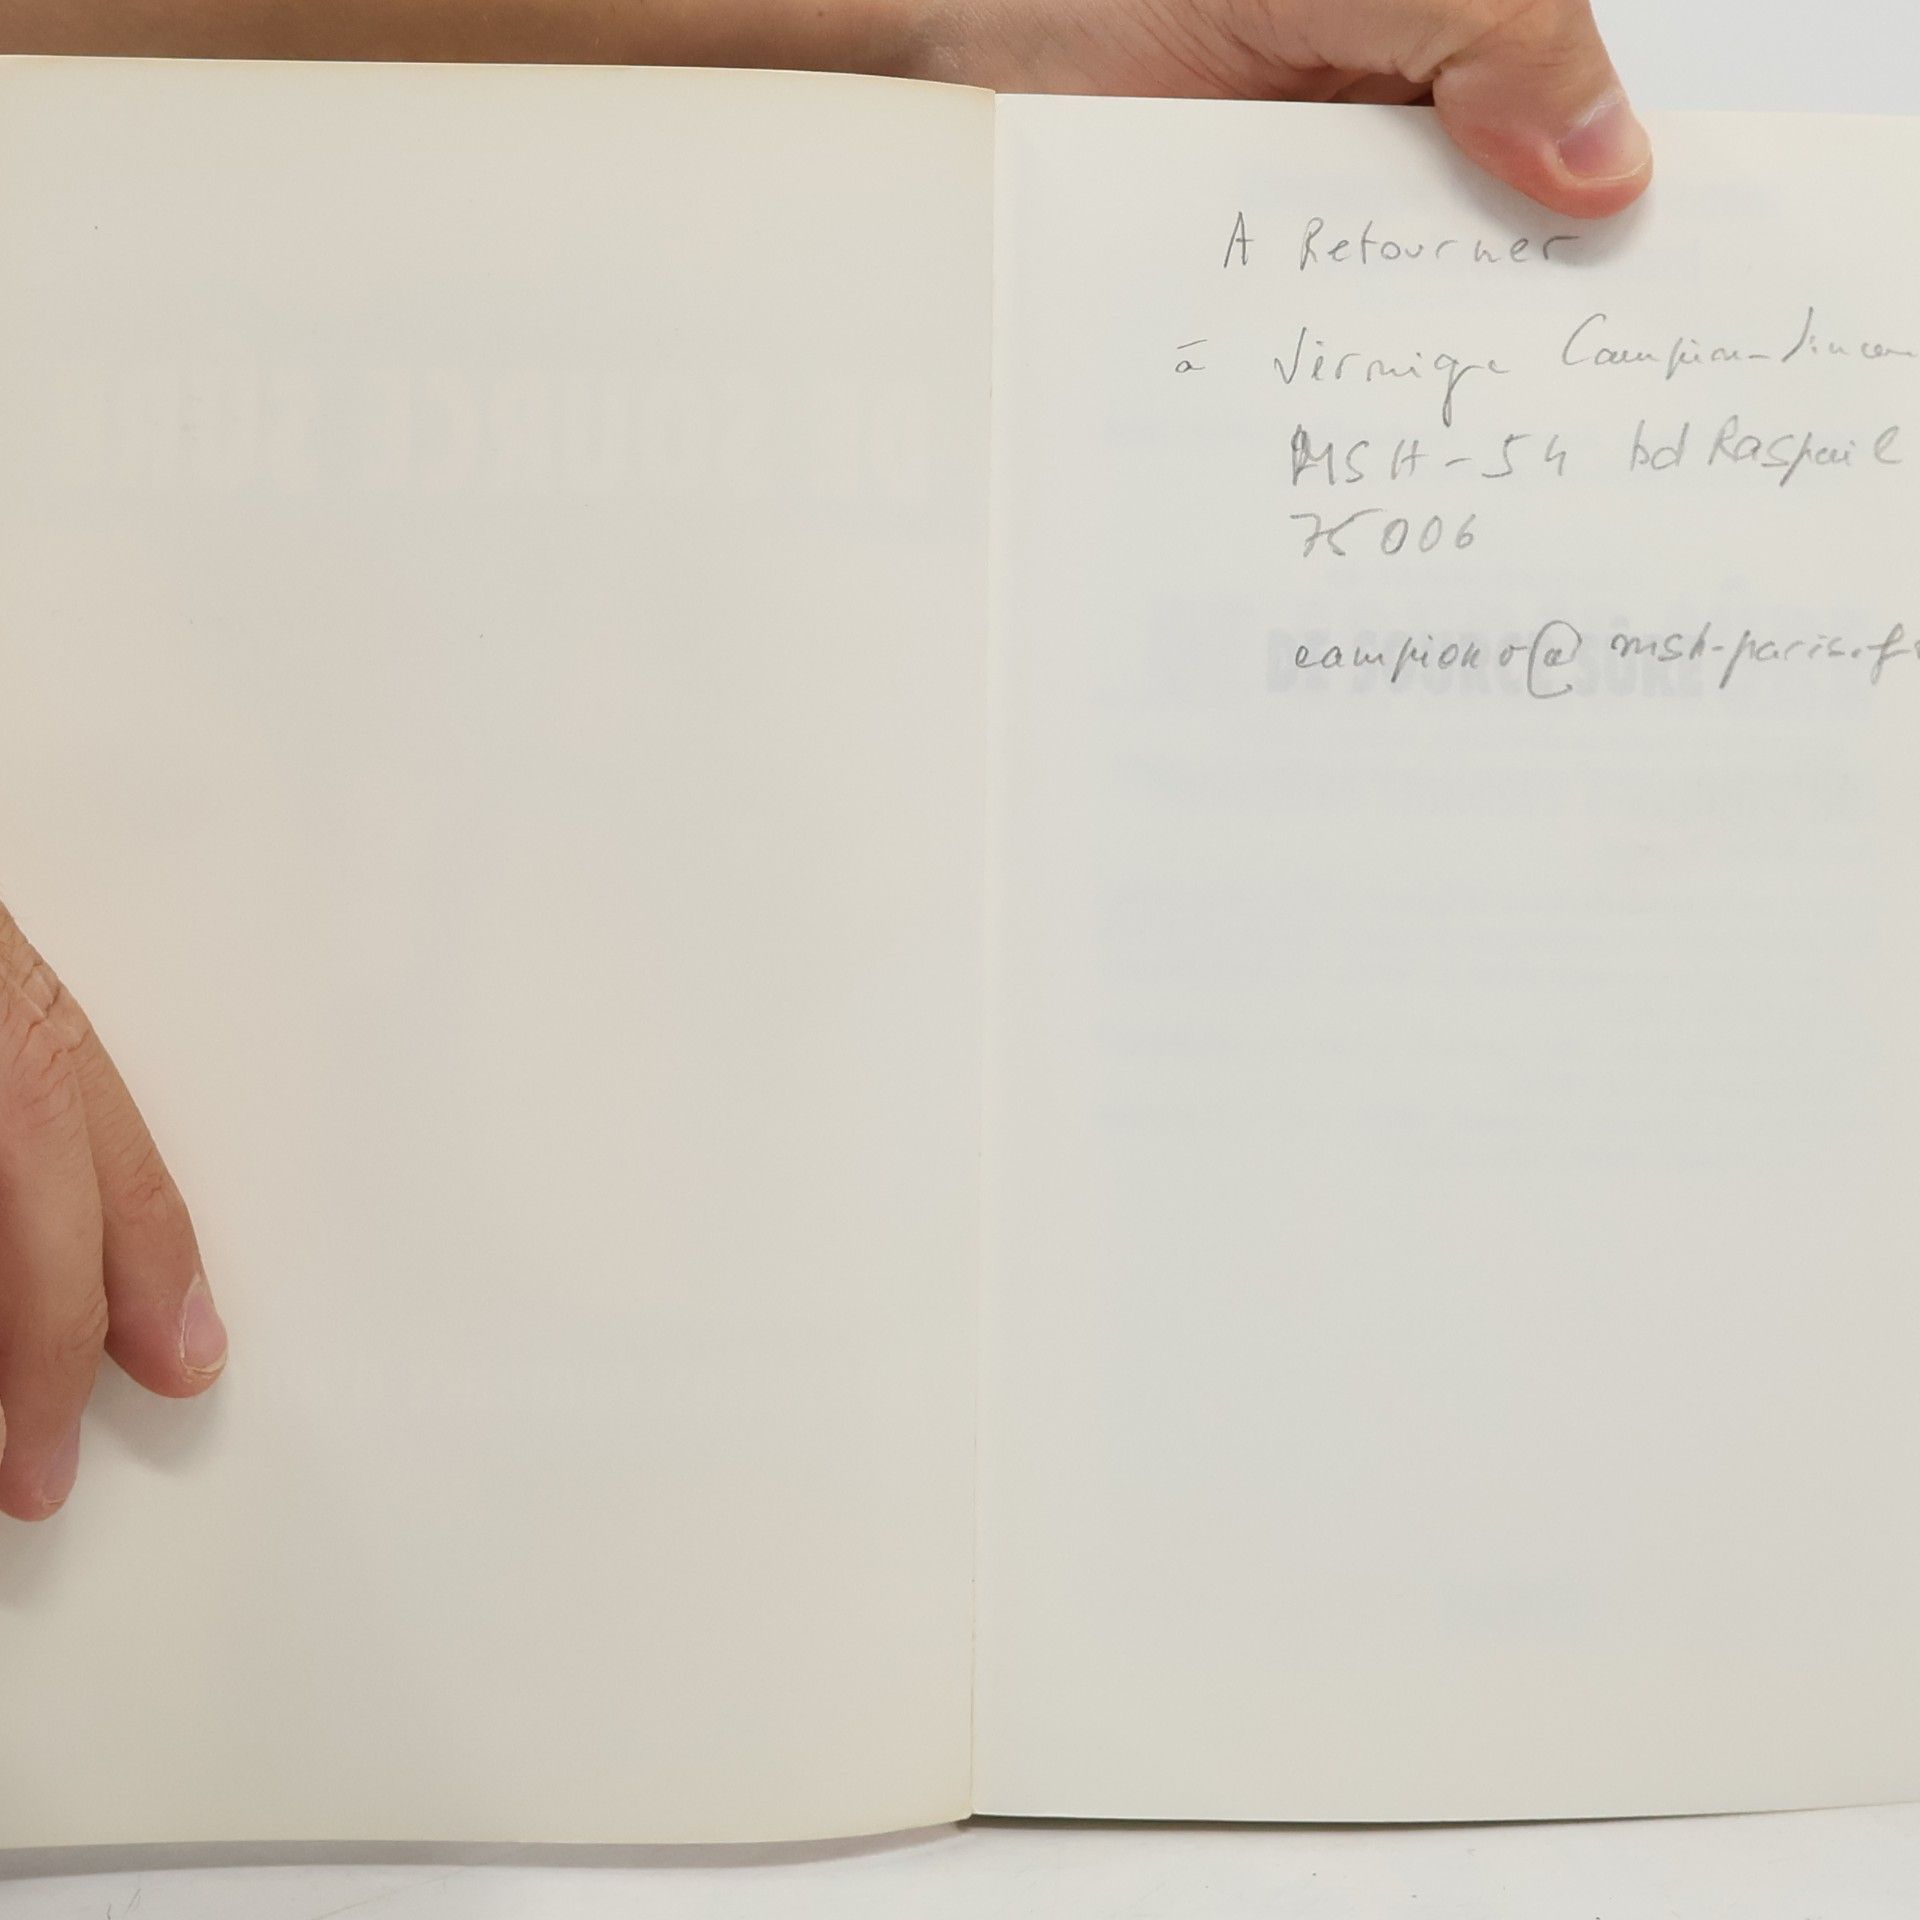 A Retourner
à Véronique Campion-Vincent
MSH - 54 bd Raspail
75006
campionv@msh-paris.fr
DE SOURCE SÛRE